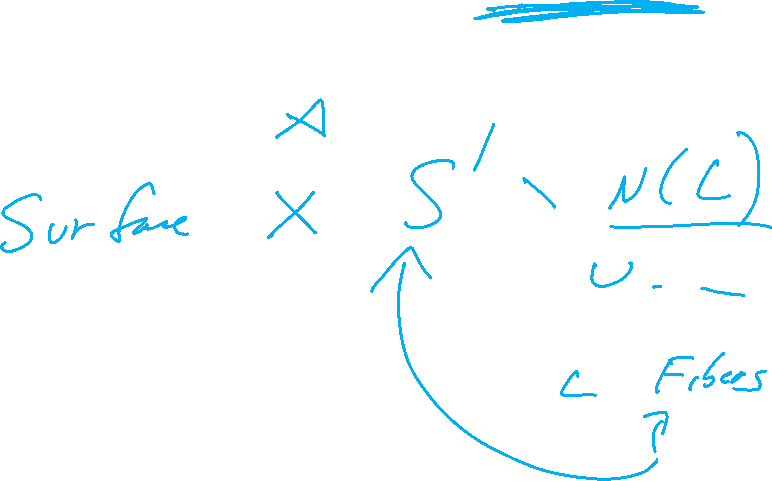 Surface × S' \ N(L)
L Fibers